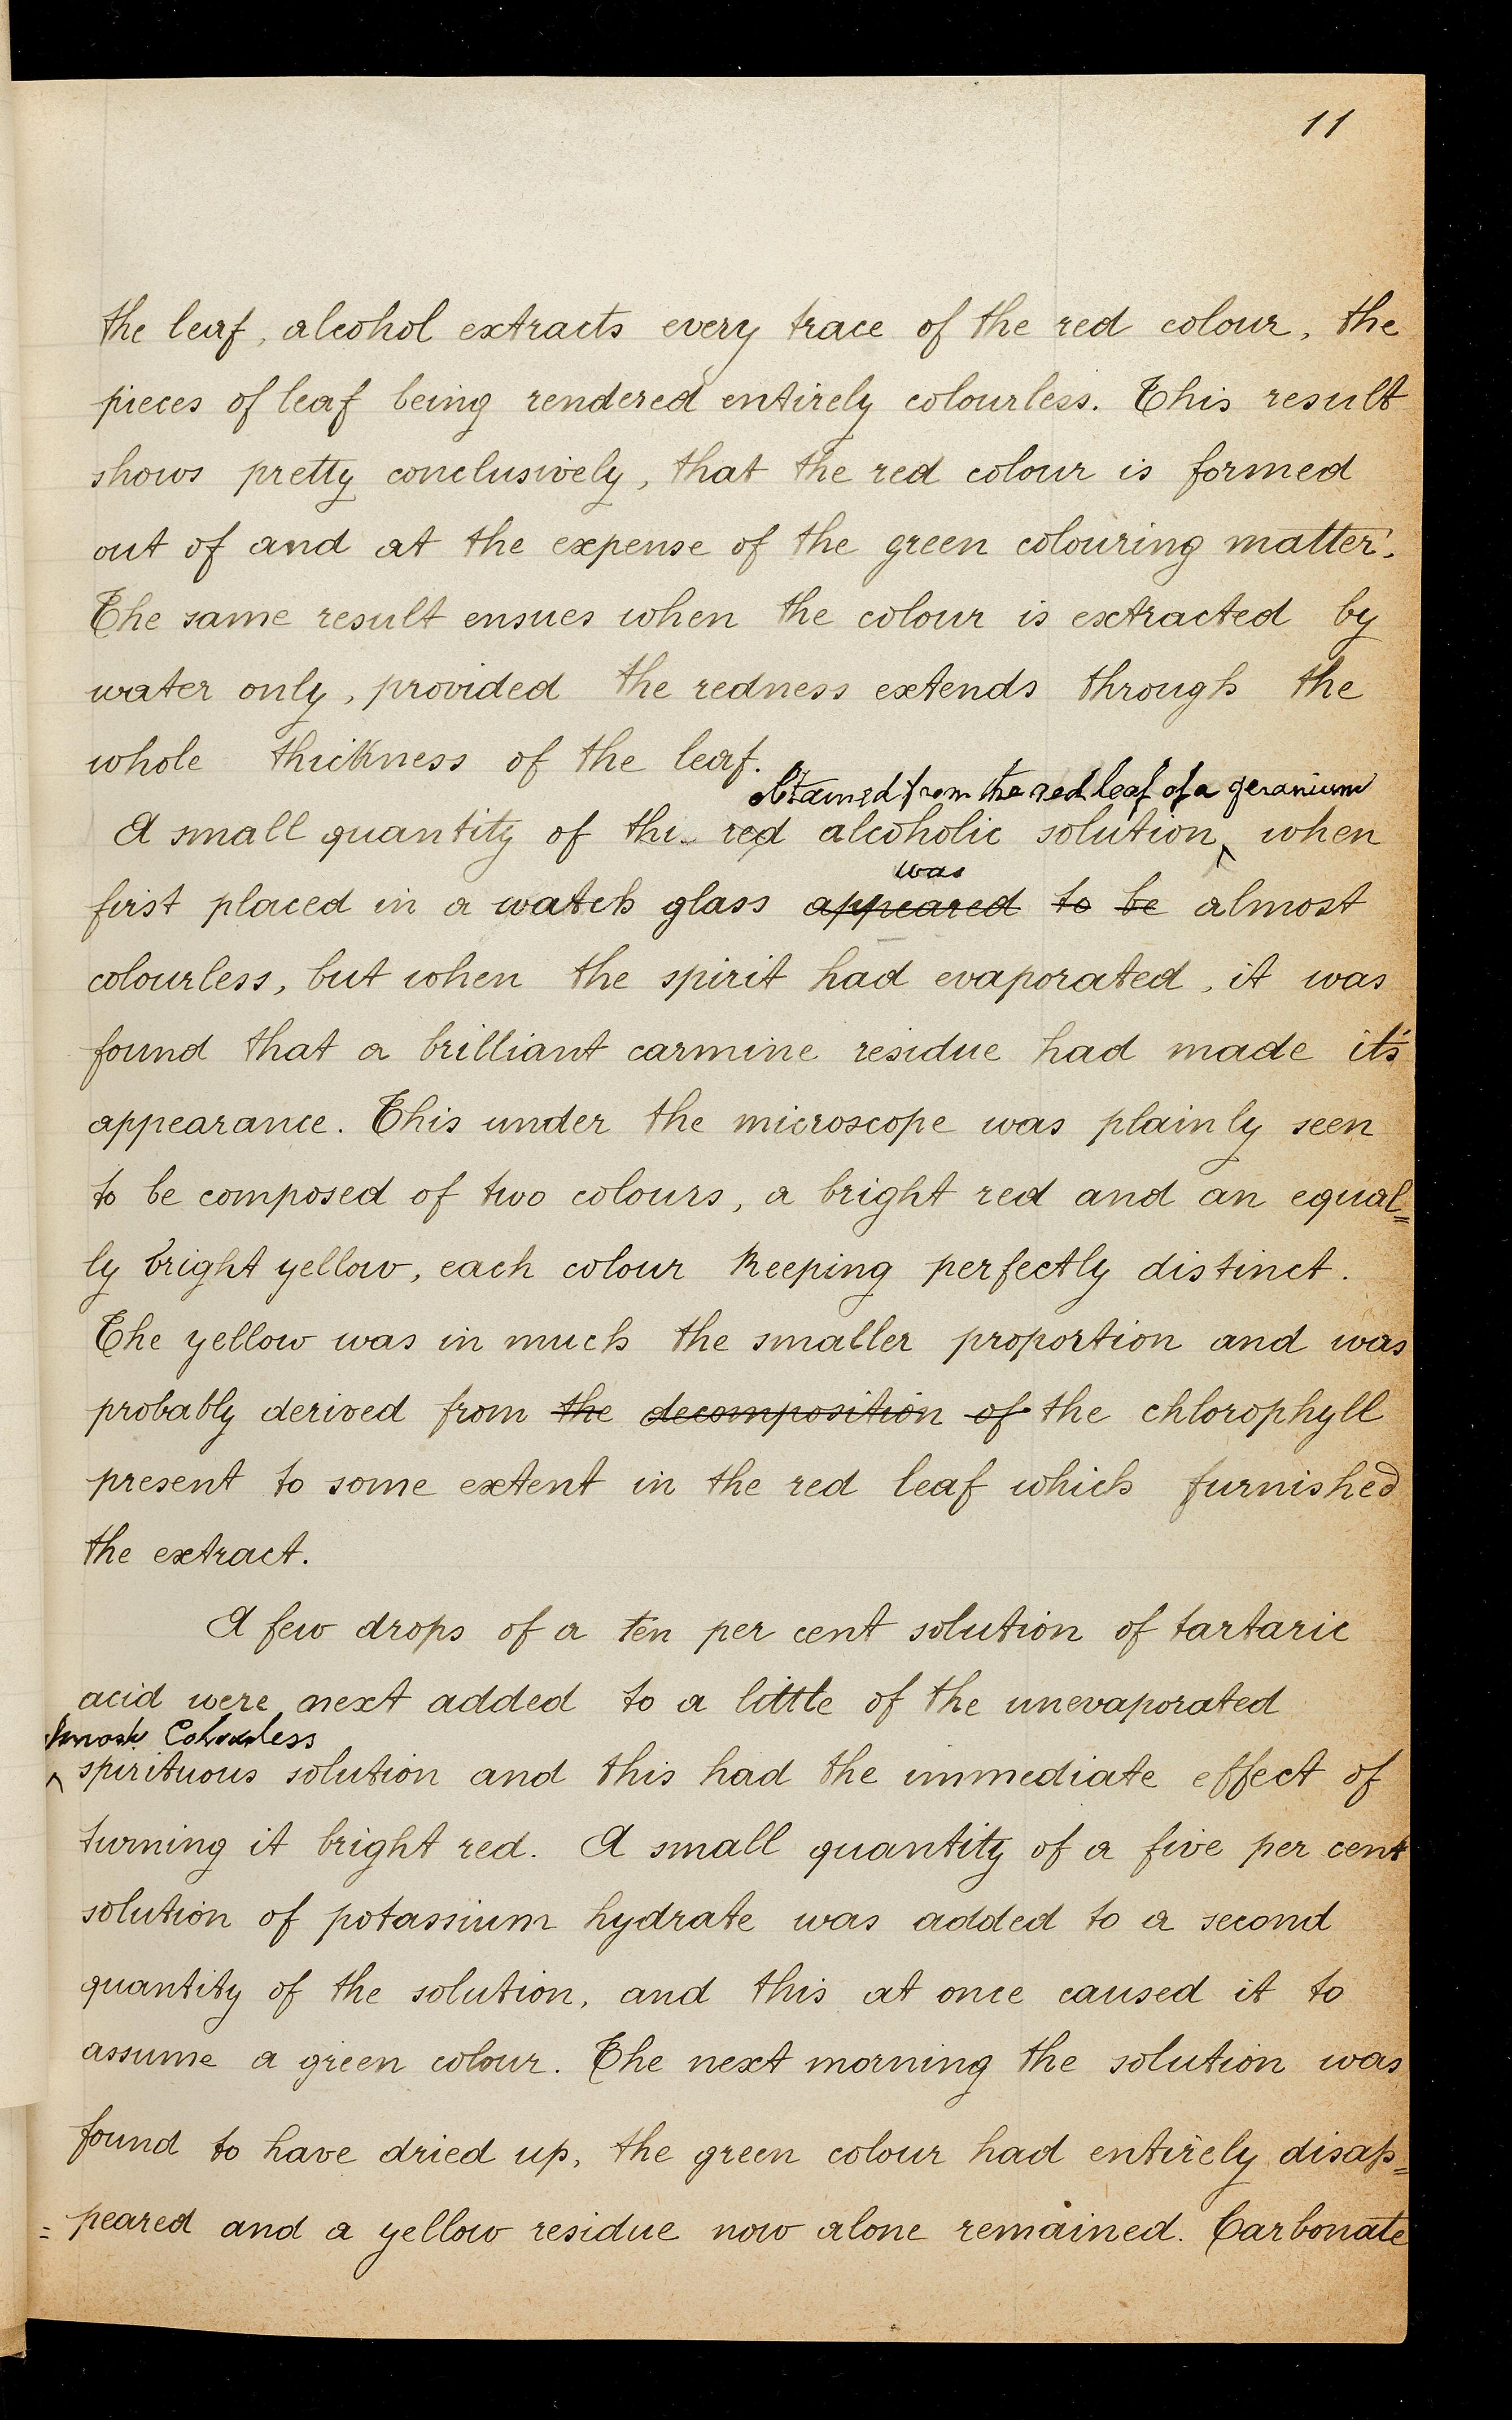 11
the leaf, alcohol extracts every trace of the red colour, the
pieces of leaf being rendered entirely colourless. This result
shows pretty conclusively, that the red colour is formed
out of and at the expense of the green colouring matter.
The same result ensues when the colour is extracted by
water only, provided the redness extends through the
whole thickness of the leaf.
obtained from the red leaf of a geranium
A small quantity of the red alcoholic solution ‸ when
was
first placed in a watch glass appeared to be almost
colourless, but when the spirit had evaporated, it was
found that a brilliant carmine residue had made it's
appearance. This under the microscope was plainly seen
to be composed of two colours, a bright red and an equal=
ly bright yellow, each colour keeping perfectly distinct.
The yellow was in much the smaller proportion and was
probably derived from the decomposition of the chlorophyll
present to some extent in the red leaf which furnished
the extract.
A few drops of a ten per cent solution of tartaric
acid were next added to a little of the unevaporated
almost Colourless
‸ spirituous solution and this had the immediate effect of
turning it bright red. A small quantity of a five per cent
solution of potassium hydrate was added to a second
quantity of the solution, and this at once caused it to
assume a green colour. The next morning the solution was
found to have dried up, the green colour had entirely disap=
=peared and a yellow residue now alone remained. Carbonate